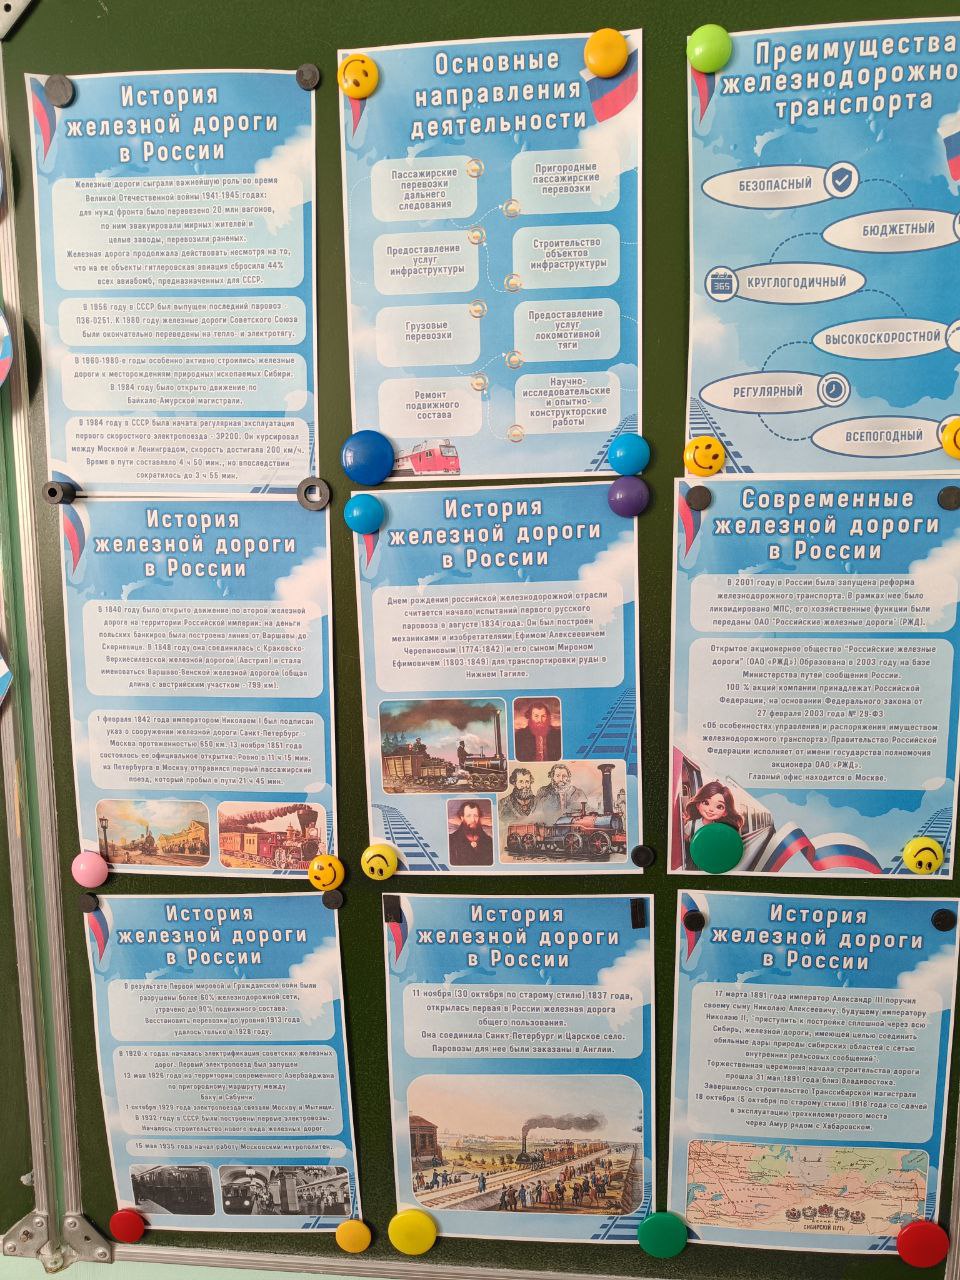 История
железной дороги
в России
Железные дороги сыграли важнейшую роль во время
Великой Отечественной войны 1941-1945 годах:
для нужд фронта было перевезено 20 млн вагонов,
по ним эвакуировали мирных жителей и
целые заводы, перевозили раненых.
Железная дорога продолжала действовать несмотря на то,
что на ее объекты гитлеровская авиация сбросила 44%
всех авиабомб, предназначенных для СССР.
В 1956 году в СССР был выпущен последний паровоз -
П36-0251. К 1980 году железные дороги Советского Союза
были окончательно переведены на тепло- и электротягу.
В 1960-1980-е годы особенно активно строились железные
дороги к месторождениям природных ископаемых Сибири.
В 1984 году было открыто движение по
Байкало-Амурской магистрали.
В 1984 году в СССР была начата регулярная эксплуатация
первого скоростного электропоезда - ЭР200. Он курсировал
между Москвой и Ленинградом, скорость достигала 200 км/ч.
Время в пути составляло 4 ч 50 мин., но впоследствии
сократилось до 3 ч 55 мин.
Основные
направления
деятельности
Пассажирские
перевозки
дальнего
следования
Пригородные
пассажирские
перевозки
Предоставление
услуг
инфраструктуры
Строительство
объектов
инфраструктуры
Грузовые
перевозки
Предоставление
услуг
локомотивной
тяги
Ремонт
подвижного
состава
Научно-
исследовательские
и опытно-
конструкторские
работы
Преимущества
железнодорожно
транспорта
БЕЗОПАСНЫЙ
БЮДЖЕТНЫЙ
365
КРУГЛОГОДИЧНЫЙ
ВЫСОКОСКОРОСТНОЙ
РЕГУЛЯРНЫЙ
ВСЕПОГОДНЫЙ
История
железной дороги
в России
В 1840 году было открыто движение по второй железной
дороге на территории Российской империи: на деньги
польских банкиров была построена линия от Варшавы до
Скерневице. В 1848 году она соединилась с Краковско-
Верхнесилезской железной дорогой (Австрия) и стала
именоваться Варшаво-Венской железной дорогой (общая
длина с австрийским участком - 799 км).
1 февраля 1842 года императором Николаем I был подписан
указ о сооружении железной дороги Санкт-Петербург -
Москва протяженностью 650 км. 13 ноября 1851 года
состоялось ее официальное открытие. Ровно в 11 ч 15 мин.
из Петербурга в Москву отправился первый пассажирский
поезд, который пробыл в пути 21 ч 45 мин.
История
железной дороги
в России
Днем рождения российской железнодорожной отрасли
считается начало испытаний первого русского
паровоза в августе 1834 года. Он был построен
механиками и изобретателями Ефимом Алексеевичем
Черепановым (1774-1842) и его сыном Мироном
Ефимовичем (1803-1849) для транспортировки руды в
Нижнем Тагиле.
Современные
железной дороги
в России
В 2001 году в России была запущена реформа
железнодорожного транспорта. В рамках нее было
ликвидировано МПС, его хозяйственные функции были
переданы ОАО "Российские железные дороги" (РЖД).
Открытое акционерное общество "Российские железные
дороги" (ОАО «РЖД») Образована в 2003 году на базе
Министерства путей сообщения России.
100 % акций компании принадлежат Российской
Федерации, на основании Федерального закона от
27 февраля 2003 года № 29-ФЗ
«Об особенностях управления и распоряжения имуществом
железнодорожного транспорта». Правительство Российской
Федерации исполняет от имени государства полномочия
акционера ОАО «РЖД».
Главный офис находится в Москве.
История
железной дороги
в России
В результате Первой мировой и Гражданской войн были
разрушены более 60% железнодорожной сети,
утрачено до 90% подвижного состава.
Восстановить перевозки до уровня 1913 года
удалось только в 1928 году.
В 1920-х годах началась электрификация советских железных
дорог. Первый электропоезд был запущен
13 мая 1926 года на территории современного Азербайджана
по пригородному маршруту между
Баку и Сабунчи.
1 октября 1929 года электропоезда связали Москву и Мытищи.
В 1932 году в СССР были построены первые электровозы.
Началось строительство нового вида железных дорог.
15 мая 1935 года начал работу Московский метрополитен.
История
железной дороги
в России
11 ноября (30 октября по старому стилю) 1837 года,
открылась первая в России железная дорога
общего пользования.
Она соединила Санкт-Петербург и Царское село.
Паровозы для нее были заказаны в Англии.
История
железной дороги
в России
17 марта 1891 года император Александр III поручил
своему сыну Николаю Алексеевичу, будущему императору
Николаю II, "приступить к постройке сплошной через всю
Сибирь, железной дороги, имеющей целью соединить
обильные дары природы сибирских областей с сетью
внутренних рельсовых сообщений".
Торжественная церемония начала строительства дороги
прошла 31 мая 1891 года близ Владивостока.
Завершилось строительство Транссибирской магистрали
18 октября (5 октября по старому стилю) 1916 года со сдачей
в эксплуатацию трехкилометрового моста
через Амур рядом с Хабаровском.
СИБИРСКИЙ ПУТЬ